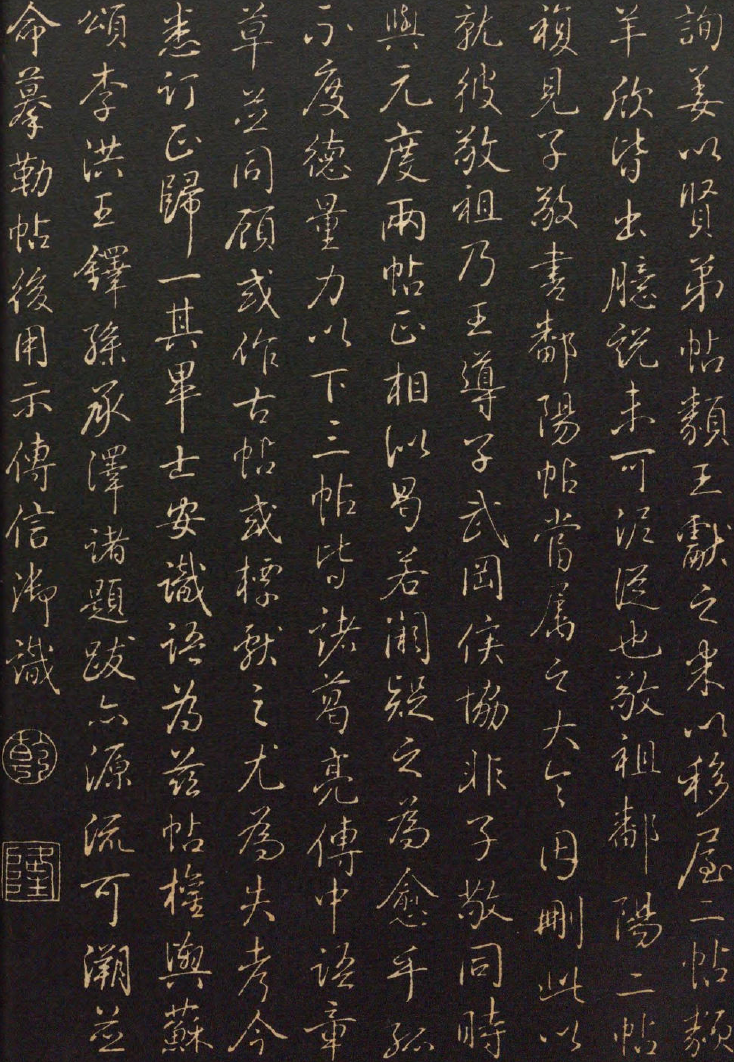 詢姜以賢弟帖類王獻之米以移屋二帖類
羊欣皆出臆說未可泥從也敬祖鄱陽二帖
複見子敬書鄱陽帖當屬之大令因刪此以
就彼敬祖乃王導子武岡侯協非子敬同時
與元度兩帖正相似曷若闕疑之為愈乎孫
不度德量力以下三帖皆諸葛亮傳中語章
草並同顧或作古帖或標獻之尤為失考今
悉訂正歸一其畢士安識語為茲帖權輿蘇
頌李洪王鐸孫承澤諸題跋亦源流可溯並
命摹勒帖後用示傳信御識
乾
隆